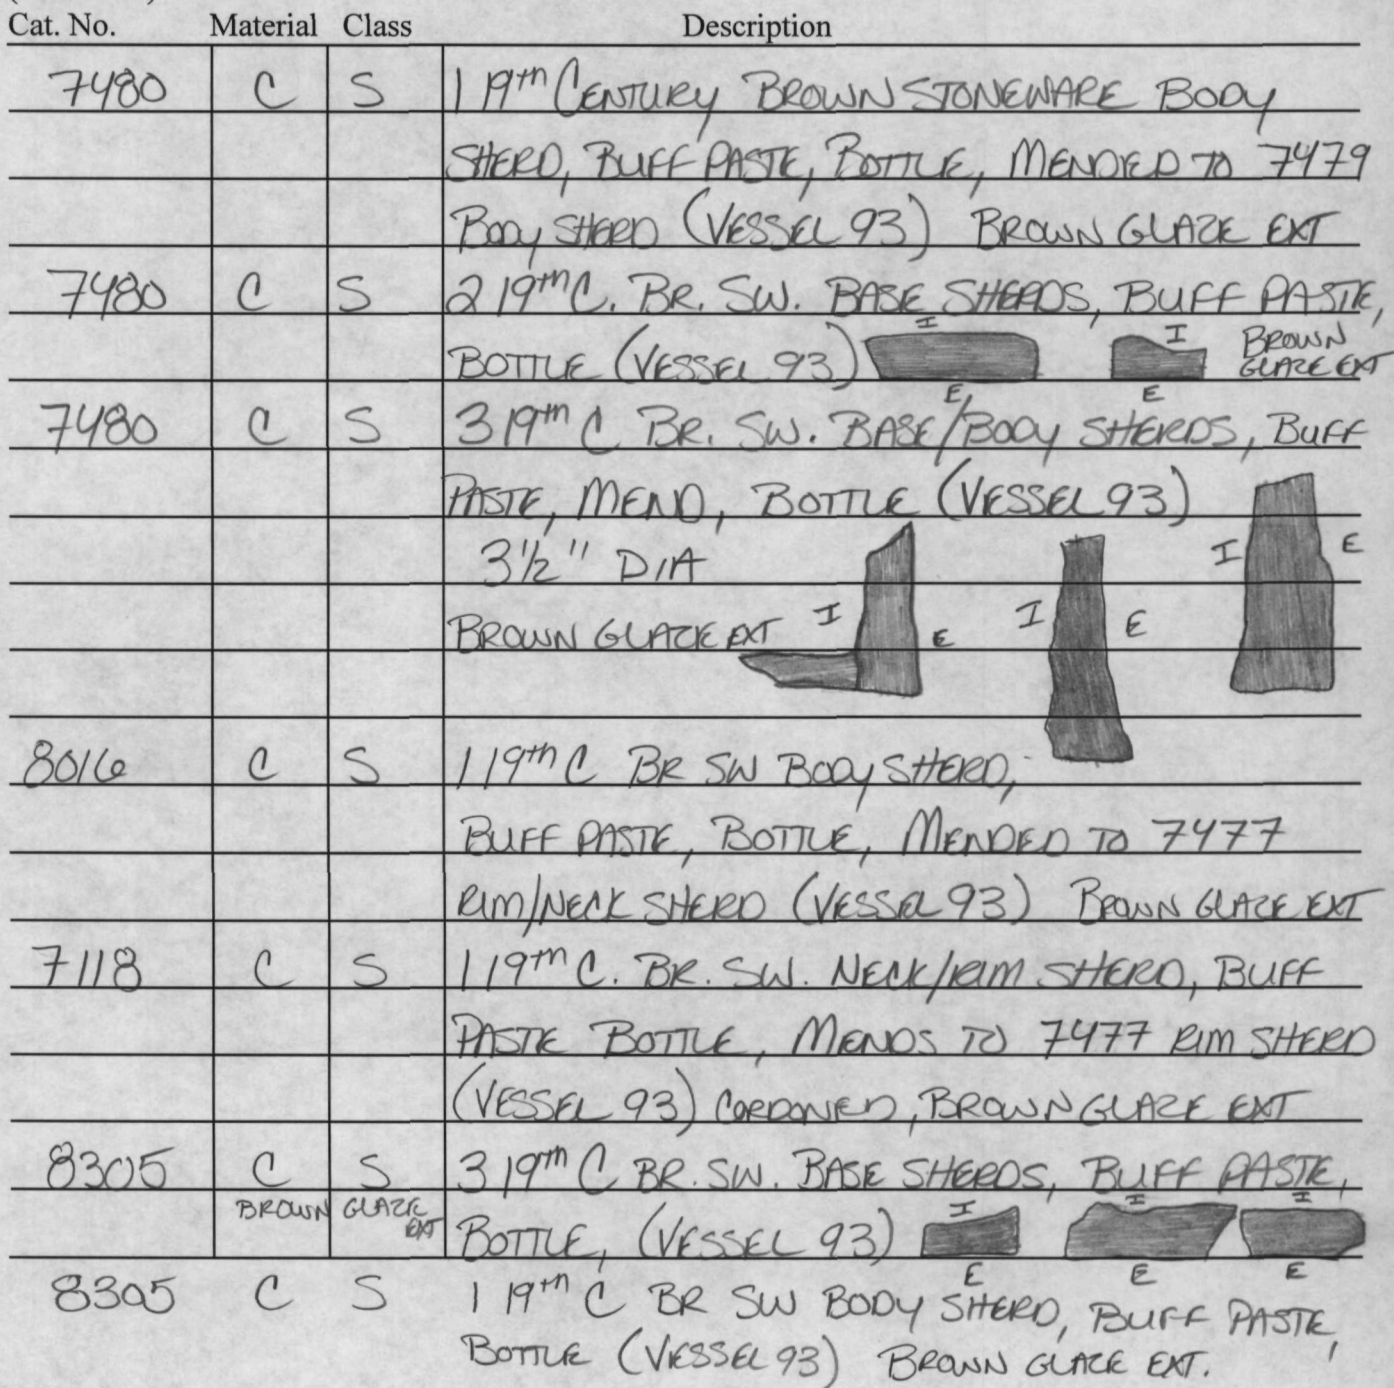 Cat. No. Material Class Description
7480 C S 1 19th CENTURY BROWN STONEWARE BODY
SHERD, BUFF PASTE, BOTTLE, MENDED TO 7479
BODY SHERD (VESSEL 93) BROWN GLAZE EXT
7480 C S 2 19th C. BR. SW. BASE SHERDS, BUFF PASTE,
BOTTLE (VESSEL 93) I E I E BROWN
GLAZE EXT
7480 C S 3 19th C BR. SW. BASE/BODY SHERDS, BUFF
PASTE, MEND, BOTTLE (VESSEL 93)
3 1/2" DIA I E
BROWN GLAZE EXT I E I E
8016 C S 1 19th C BR SW BODY SHERD,
BUFF PASTE, BOTTLE, MENDED TO 7477
RIM/NECK SHERD (VESSEL 93) BROWN GLAZE EXT
7118 C S 1 19th C. BR. SW. NECK/RIM SHERD, BUFF
PASTE BOTTLE, MENDS TO 7477 RIM SHERD
(VESSEL 93) CORDONED, BROWN GLAZE EXT
8305 C S 3 19th C BR. SW. BASE SHERDS, BUFF PASTE,
BROWN GLAZE
EXT
BOTTLE, (VESSEL 93) I I I
E E E
8305 C S 1 19th C BR SW BODY SHERD, BUFF PASTE,
BOTTLE (VESSEL 93) BROWN GLAZE EXT.